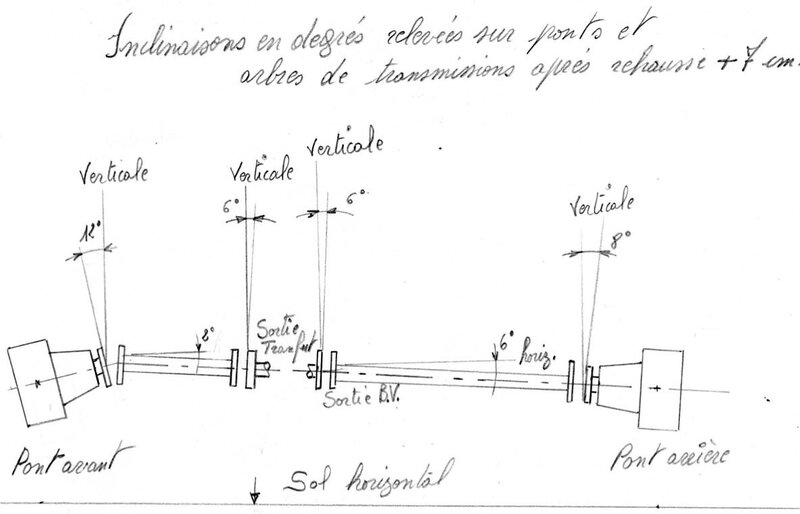 Inclinaisons en degrés relevées sur ponts et
arbres de transmissions après rehausse +7 cm.
Verticale
Verticale
Verticale
Verticale
12°
6°
6°
8°
2°
Sortie
Transfert
6°
horiz.
Sortie B.V.
Pont avant
Pont arrière
Sol horizontal